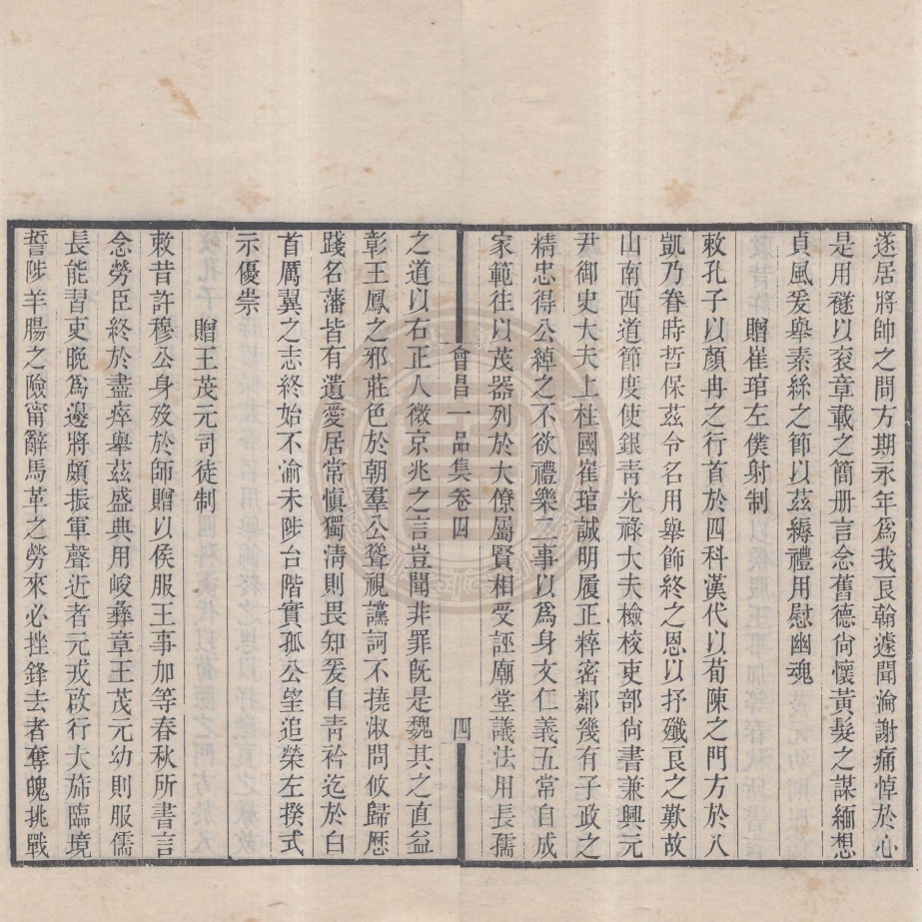 遂居將帥之間方期永年爲我良翰遽聞淪謝痛悼於心
是用襚以衮章載之簡册言念舊德尙懷黃髮之謀緬想
貞風爰舉素絲之節以茲縟禮用慰幽魂
贈崔琯左僕射制
敕孔子以顏冉之行首於四科漢代以荀陳之門方於八
凱乃眷時哲保茲令名用舉飾終之恩以抒殲良之歎故
山南西道節度使銀青光祿大夫檢校吏部尙書兼興元
尹御史大夫上柱國崔琯誠明履正粹密鄰幾有子政之
精忠得公綽之不欲禮樂二事以爲身文仁義五常自成
家範往以茂器列於大僚屬賢相受誣廟堂議法用長孺
會昌一品集卷四
四
之道以右正人微京兆之言豈聞非罪旣是魏其之直益
彰王鳳之邪莊色於朝羣公聳視讜詞不撓淑問攸歸歷
踐名藩皆有遺愛居常愼獨淸則畏知爰自靑衿迄於白
首厲翼之志終始不渝未陟台階實孤公望追榮左揆式
示優崇
贈王茂元司徒制
敕昔許穆公身歿於師贈以侯服王事加等春秋所書言
念勞臣終於盡瘁舉茲盛典用峻彝章王茂元幼則服儒
長能習吏晚爲邊將頗振軍聲近者元戎啟行大斾臨境
誓陟羊腸之險甯辭馬革之勞來必挫鋒去者奪魄挑戰